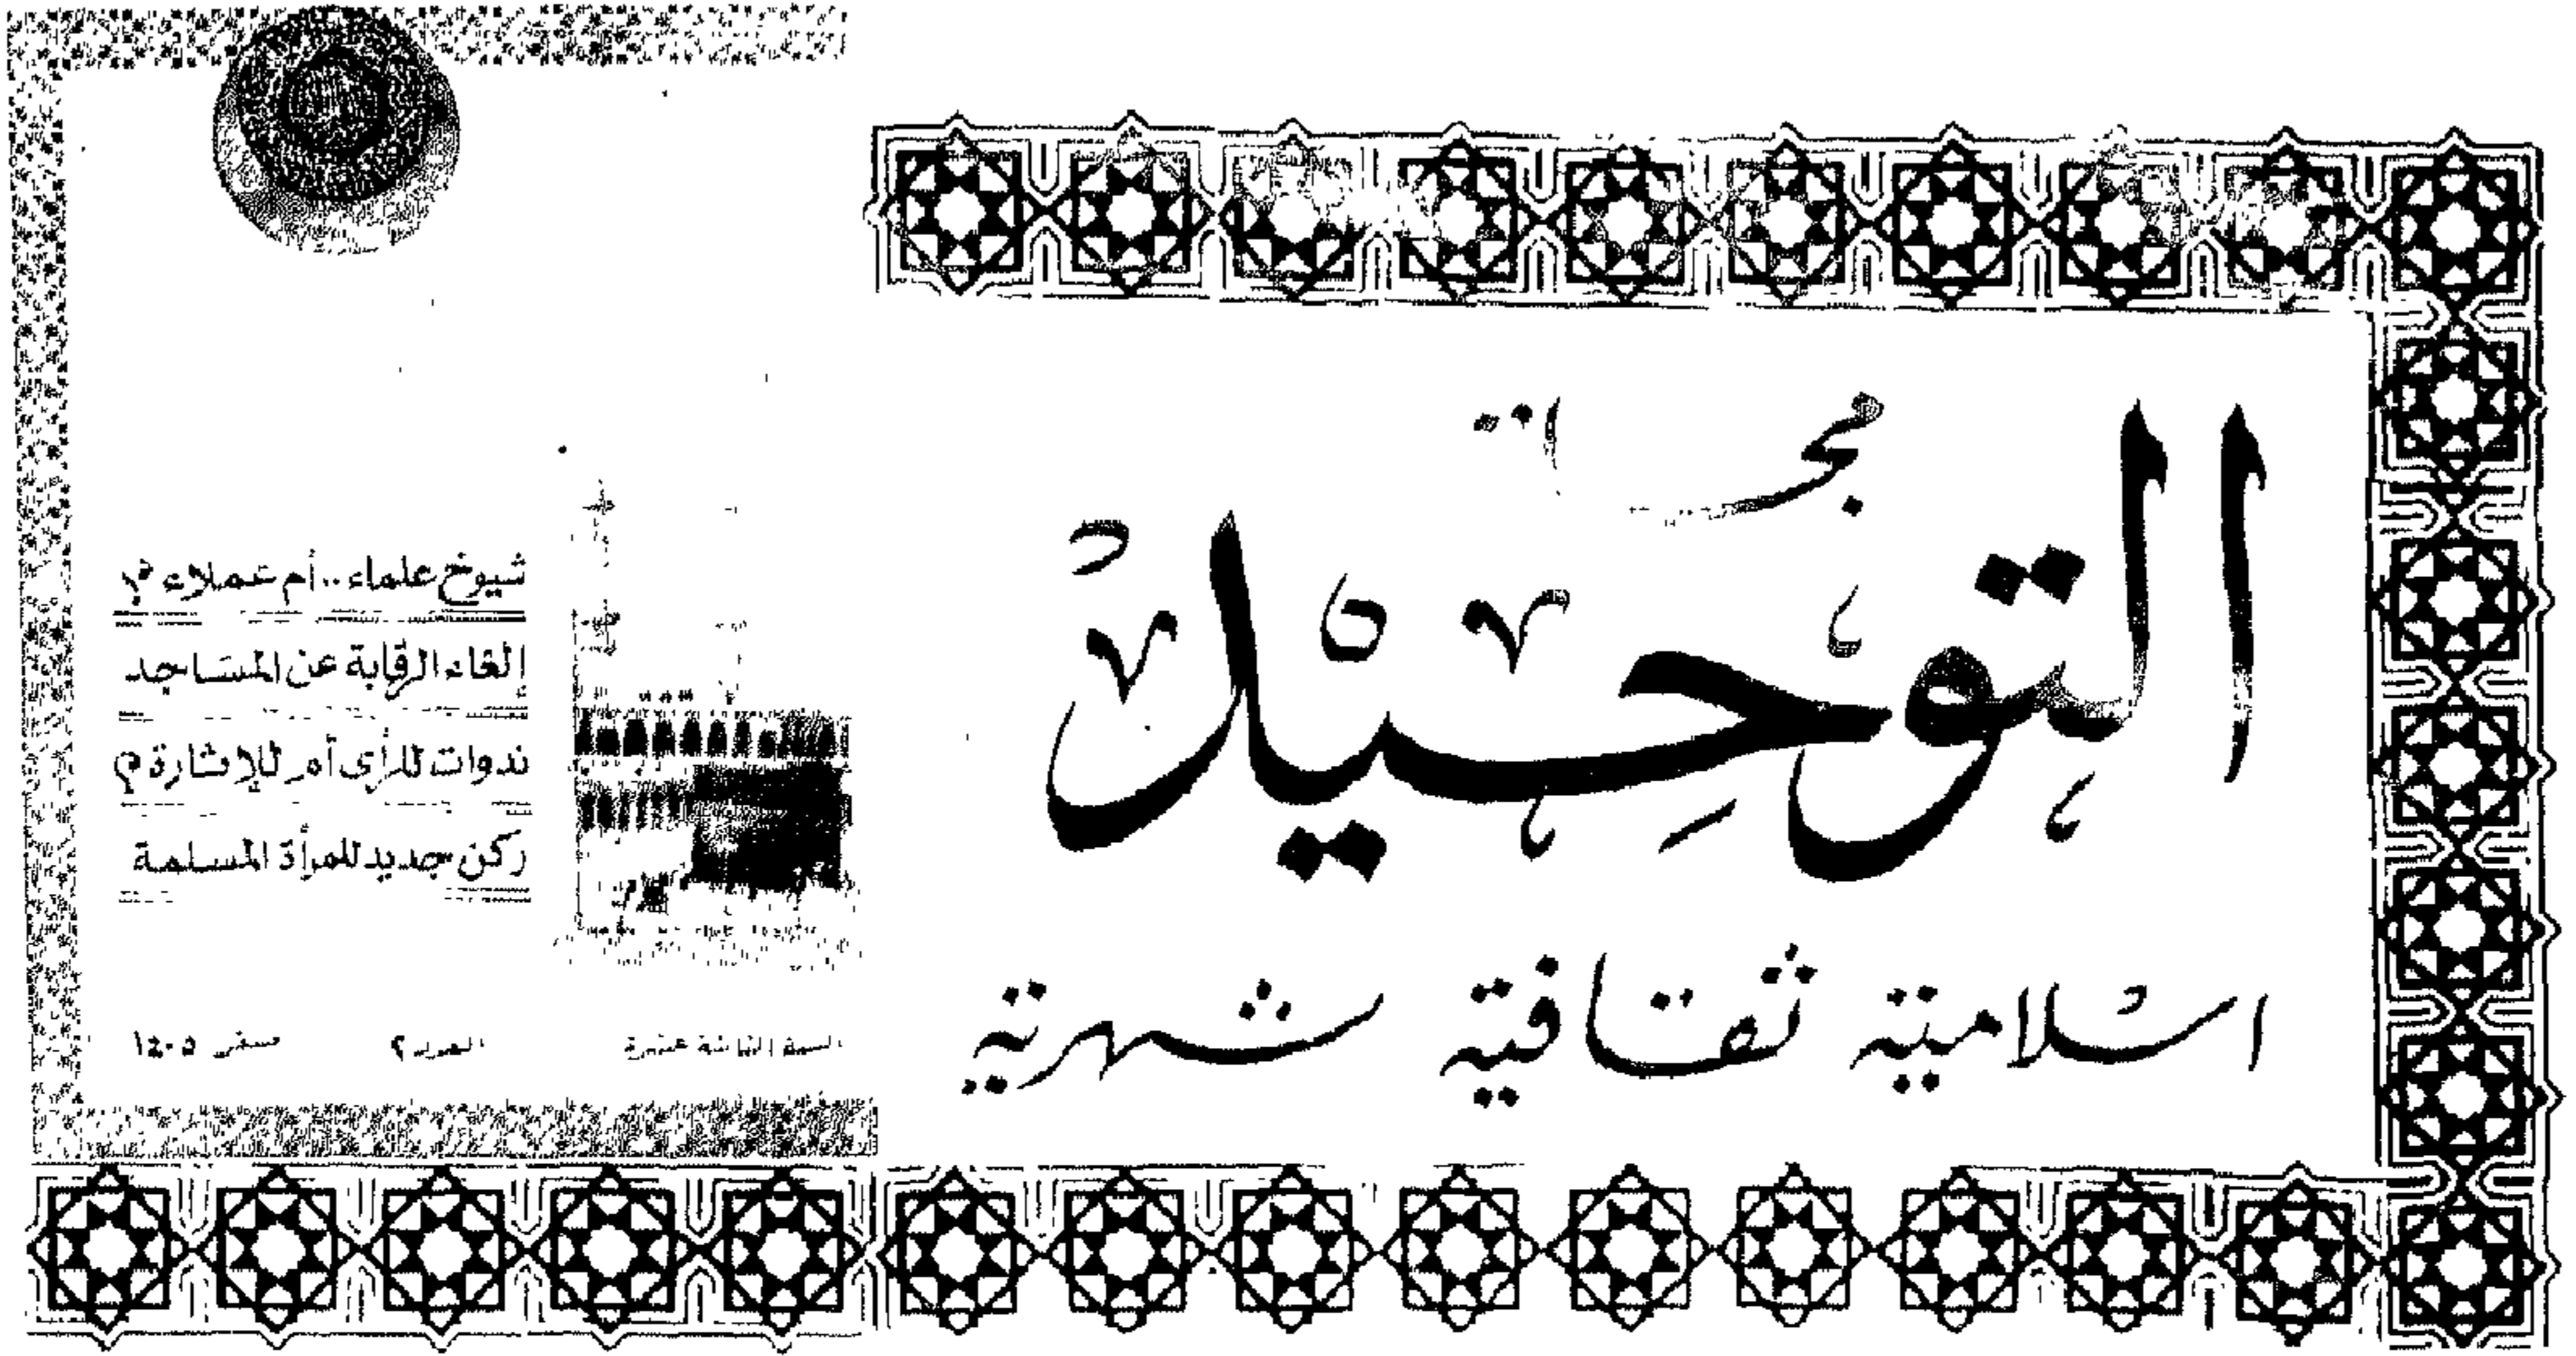 مجلة
التوحيد
اسلامية ثقافية شهرية
شيوخ علماء .. أم عملاء ؟!
إلغاء الرقابة عن المساجد
ندوات للرأى أم للإثارة ؟
ركن جديد للمرأة المسلمة
السنة عشرة العدد ٢ صفر ١٤٠٥